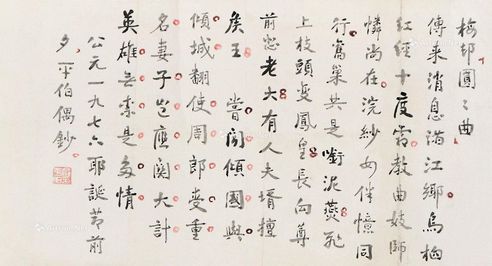 梅邨圓〻曲
傳来消息滿江鄉烏桕
紅經十度霜教曲妓師
憐尚在浣紗女伴憶同
行舊巢共是銜泥燕飛
上枝頭變鳳皇長向尊
前悲老大有人夫壻擅
矦王 嘗聞傾國與
傾城翻使周郎受重
名妻子豈應關大計
英雄無柰是多情
公元一九七六耶誕節前
夕 平伯偶鈔